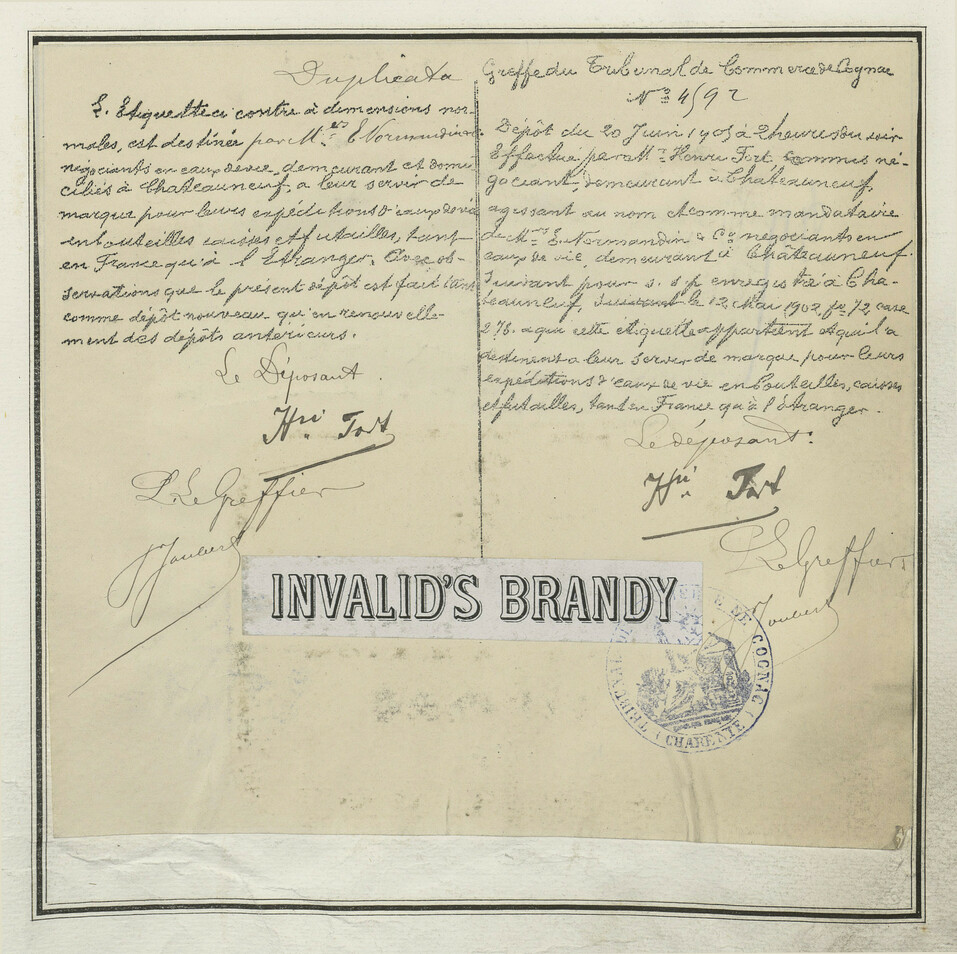 Duplicata
L'Etiquette ci contre à dimensions nor-
males, est destinée par Mrs E. Normandin
négociants en eaux de vie, demeurant et domi-
ciliés à Chateauneuf, a leur servir de
marque pour leurs expéditions d'eaux de vie
en bouteilles caisses et futailles, tant
en France qu'à l'Etranger. Avec ob-
servations que le présent dépôt est fait tant
comme dépôt nouveau qu'en renouvelle-
ment des dépôts antérieurs.
Le Déposant.
Hri Fort
P. Le Greffier
Joubert
Greffe du Tribunal de Commerce de Cognac
No 4592
Dépôt du 20 Juin 1905 à 2 heures du soir
Effectué par Mr Henri Fort commis né-
gociant, demeurant à Châteauneuf,
agissant au nom et comme mandataire
de Mrs E. Normandin & Co négociants en
eaux de vie, demeurant à Châteauneuf.
Suivant pour s. s. p. enregistré à Cha-
teauneuf, le 12 Mai 1902, fo 72, case
278. a qui cette étiquette appartient et qui la
destinent a leur servir de marque pour leurs
expéditions d'eaux de vie en bouteilles, caisses
et futailles, tant en France qu'à l'étranger.
Le déposant:
Hri Fort
P. Le Greffier
Joubert
INVALID'S BRANDY
TRIBUNAL DE COMMERCE DE COGNAC
(CHARENTE)